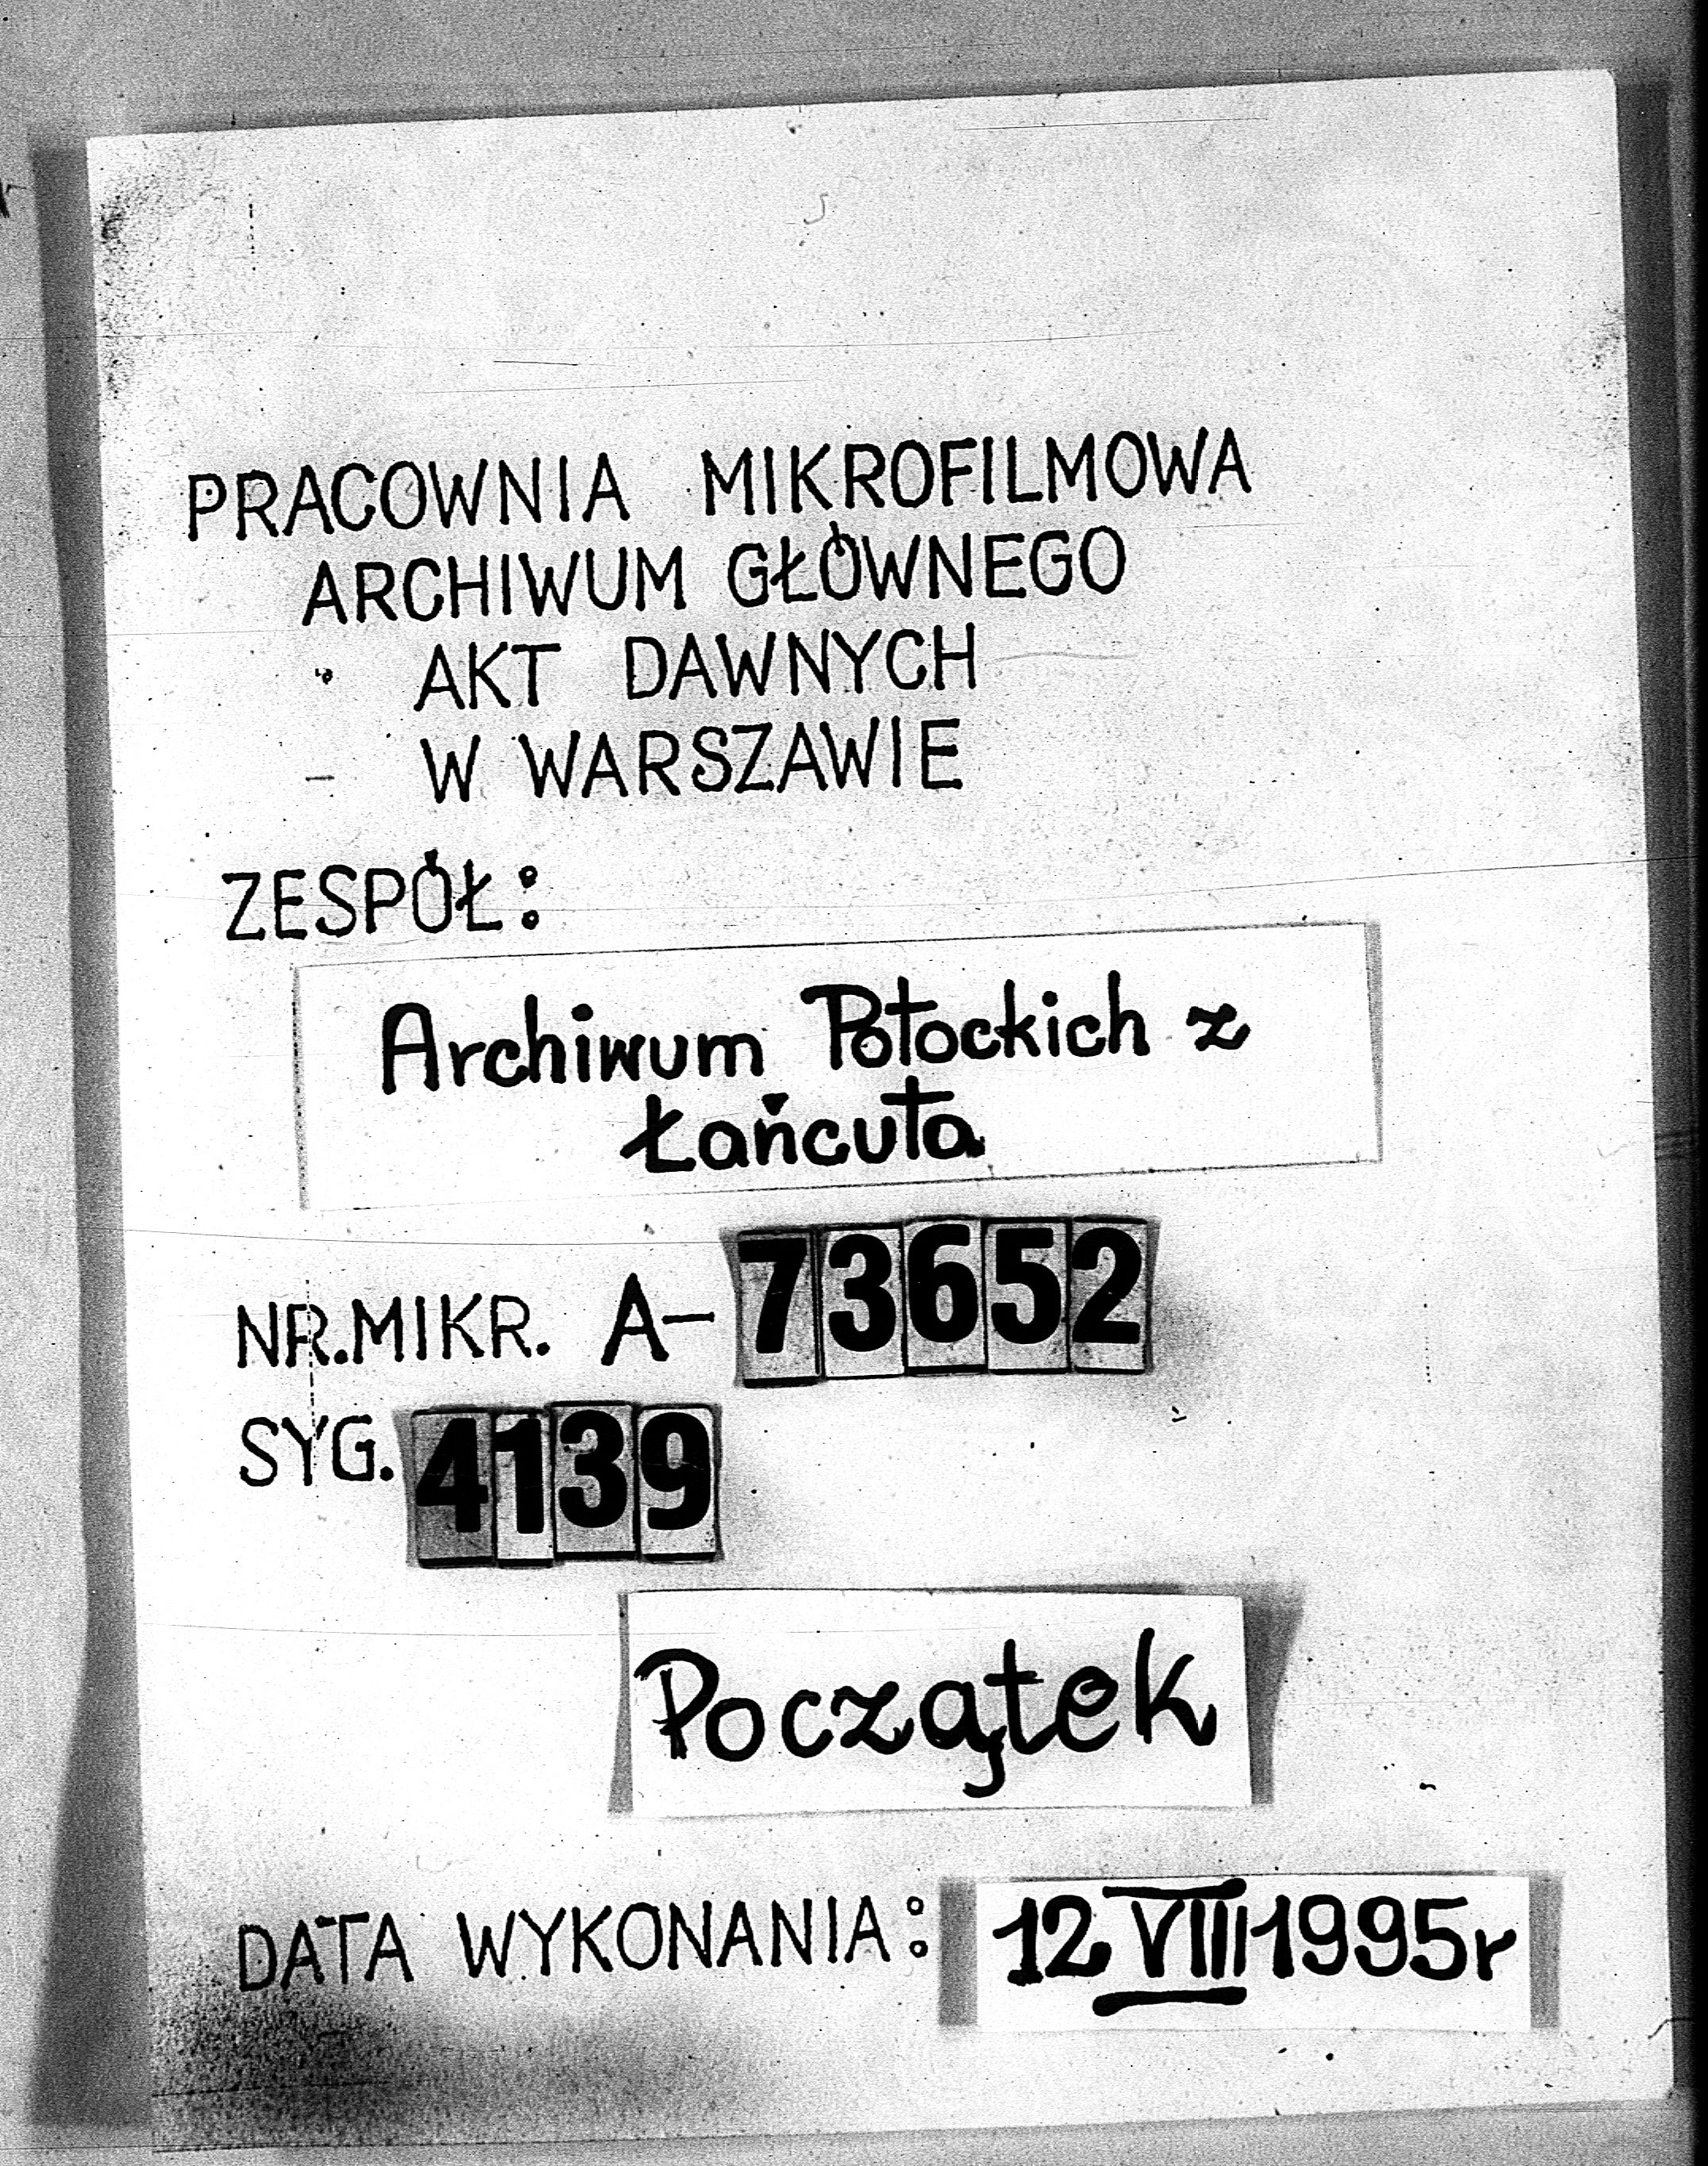 PRACOWNIA MIKROFILMOWA
ARCHIWUM GŁÓWNEGO
AKT DAWNYCH
W WARSZAWIE
ZESPÓŁ:
Archiwum Potockich z
Łańcuta
NR.MIKR. A-73652
SYG. 4139
Początek
DATA WYKONANIA: 12 VIII 1995r